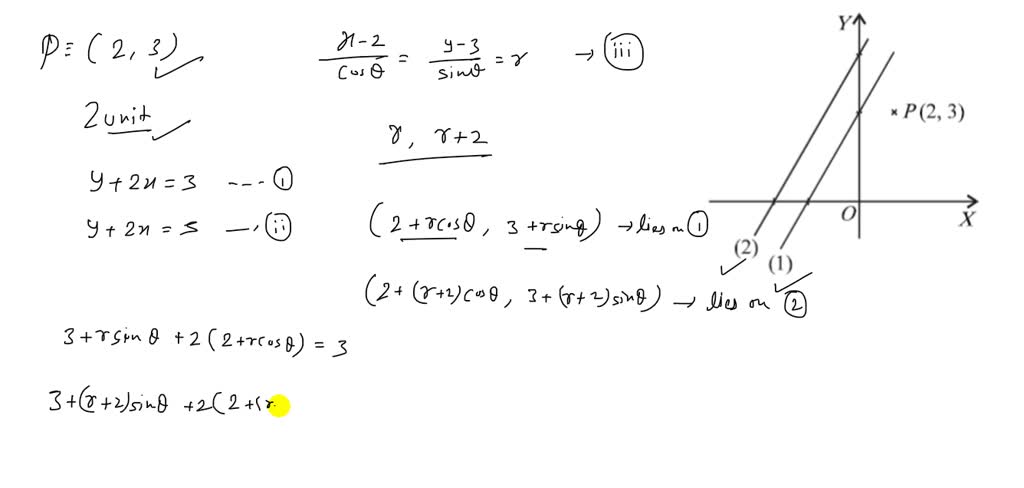 P ≡ (2, 3)
2 unit
y + 2x = 3 ---- ①
y + 2x = 5 —, ⓘⓘ
x-2/cosθ = y-3/sinθ = r → ⓘⓘⓘ
r, r+2
(2 + rcosθ, 3 + rsinθ) → lies on ①
(2 + (r+2) cosθ, 3 + (r+2) sinθ) → lies on ②
3 + r sin θ + 2 (2 + r cos θ) = 3
3 + (r+2) sinθ + 2 ( 2 + (r
Y
P(2, 3)
O
X
(2)
(1)